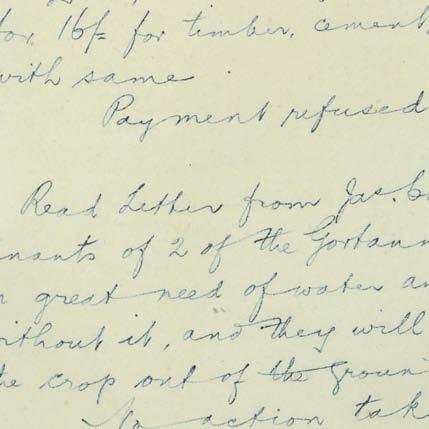 for 16/= for timber, cement,
with same
Payment refused
Read Letter from Jas.
nants of 2 of the
great need of water
ithout it, and they will
he crop out of the groun
No action tak